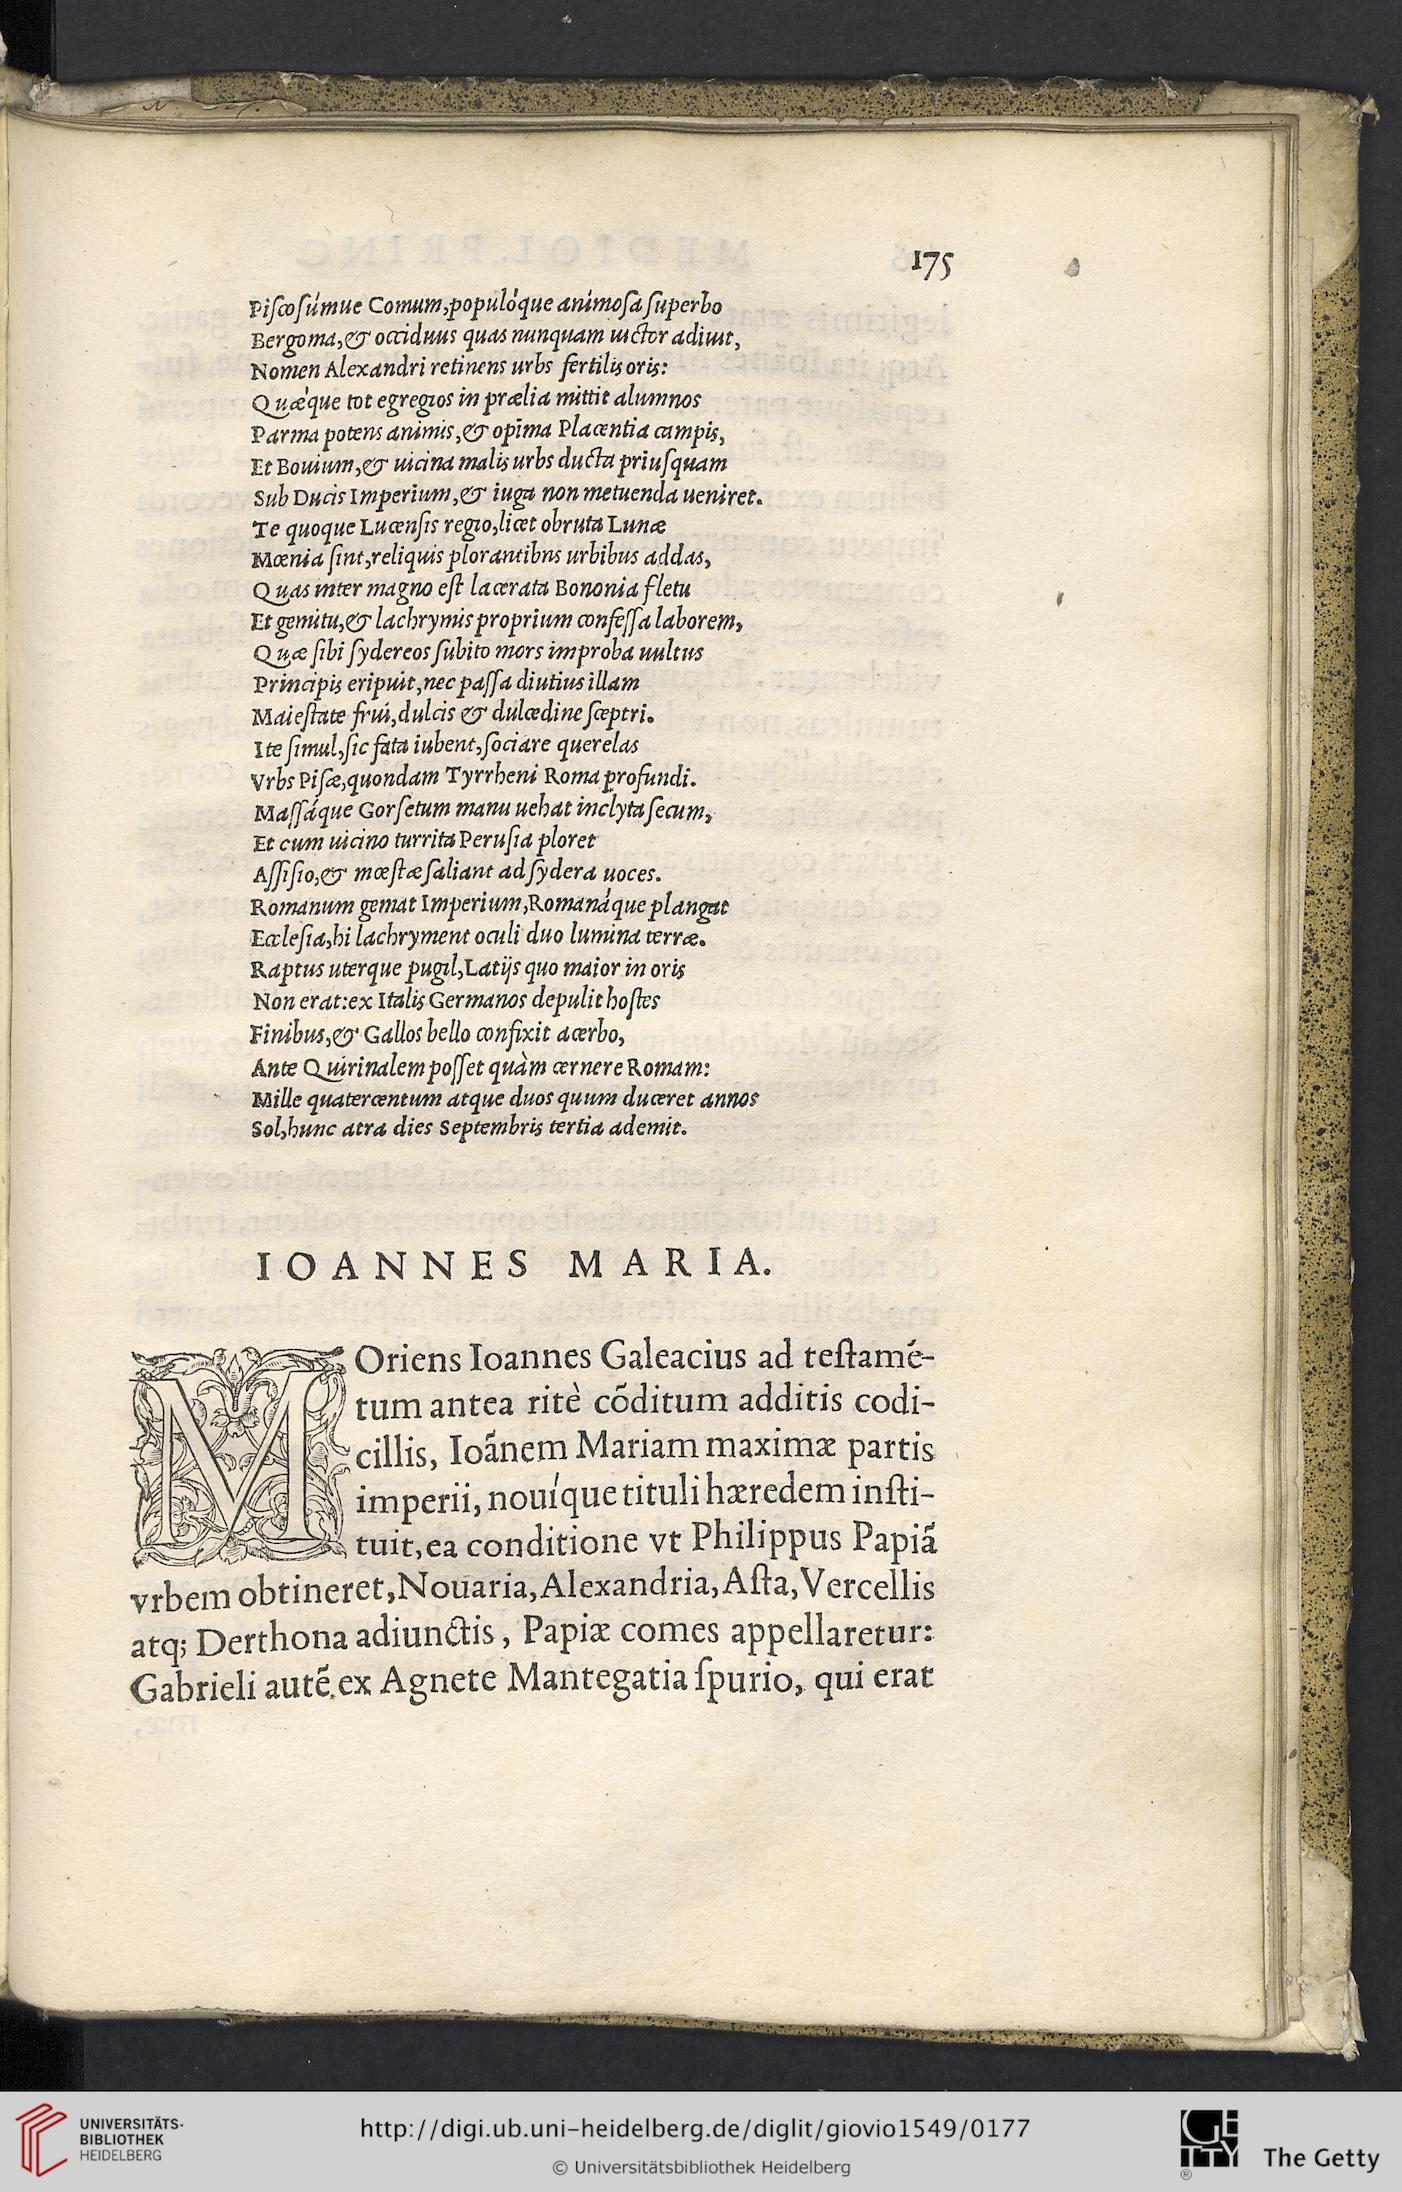 175
Piſcoſúmue Comum, populóque animoſa ſuperbo
Bergoma, & occiduus quas nunquam uictor adiuit,
Nomen Alexandri retinens urbs fertilis oris:
Quǽque tot egregios in prælia mittit alumnos
Parma potens animis, & opima Placentia campis,
Et Bouium, & uicina malis urbs ducta priuſquam
Sub Ducis Imperium, & iuga non metuenda ueniret.
Te quoque Lucenſis regio, licet obruta Lunæ
Mœnia ſint, reliquis plorantibns urbibus addas,
Quas inter magno eſt lacerata Bononia fletu
Et gemitu, & lachrymis proprium confeſſa laborem,
Quæ ſibi ſydereos ſubito mors improba uultus
Principis eripuit, nec paſſa diutius illam
Maieſtate frui, dulcis & dulcedine ſceptri.
Ite ſimul, ſic fata iubent, ſociare querelas
Vrbs Piſæ, quondam Tyrrheni Roma profundi.
Maſſáque Gorſetum manu uehat inclyta ſecum,
Et cum uicino turrita Peruſia ploret
Aſſiſio, & mœſtæ ſaliant ad ſydera uoces.
Romanum gemat Imperium, Romanáque plangat
Eccleſia, hi lachryment oculi duo lumina terræ.
Raptus uterque pugil, Latijs quo maior in oris
Non erat: ex Italis Germanos depulit hoſtes
Finibus, & Gallos bello confixit acerbo,
Ante Quirinalem poſſet quàm cernere Romam:
Mille quatercentum atque duos quum duceret annos
Sol, hunc atra dies Septembris tertia ademit.
IOANNES MARIA.
MOriens Ioannes Galeacius ad teſtamẽ-
tum antea ritè cõditum additis codi-
cillis, Ioãnem Mariam maximæ partis
imperii, nouíque tituli hæredem inſti-
tuit, ea conditione vt Philippus Papiã
vrbem obtineret, Nouaria, Alexandria, Aſta, Vercellis
atq; Derthona adiunctis, Papiæ comes appellaretur:
Gabrieli autẽ. ex Agnete Mantegatia ſpurio, qui erat
UNIVERSITÄTS-
BIBLIOTHEK
HEIDELBERG
http://digi.ub.uni-heidelberg.de/diglit/giovio1549/0177
© Universitätsbibliothek Heidelberg
GETTY
®
The Getty